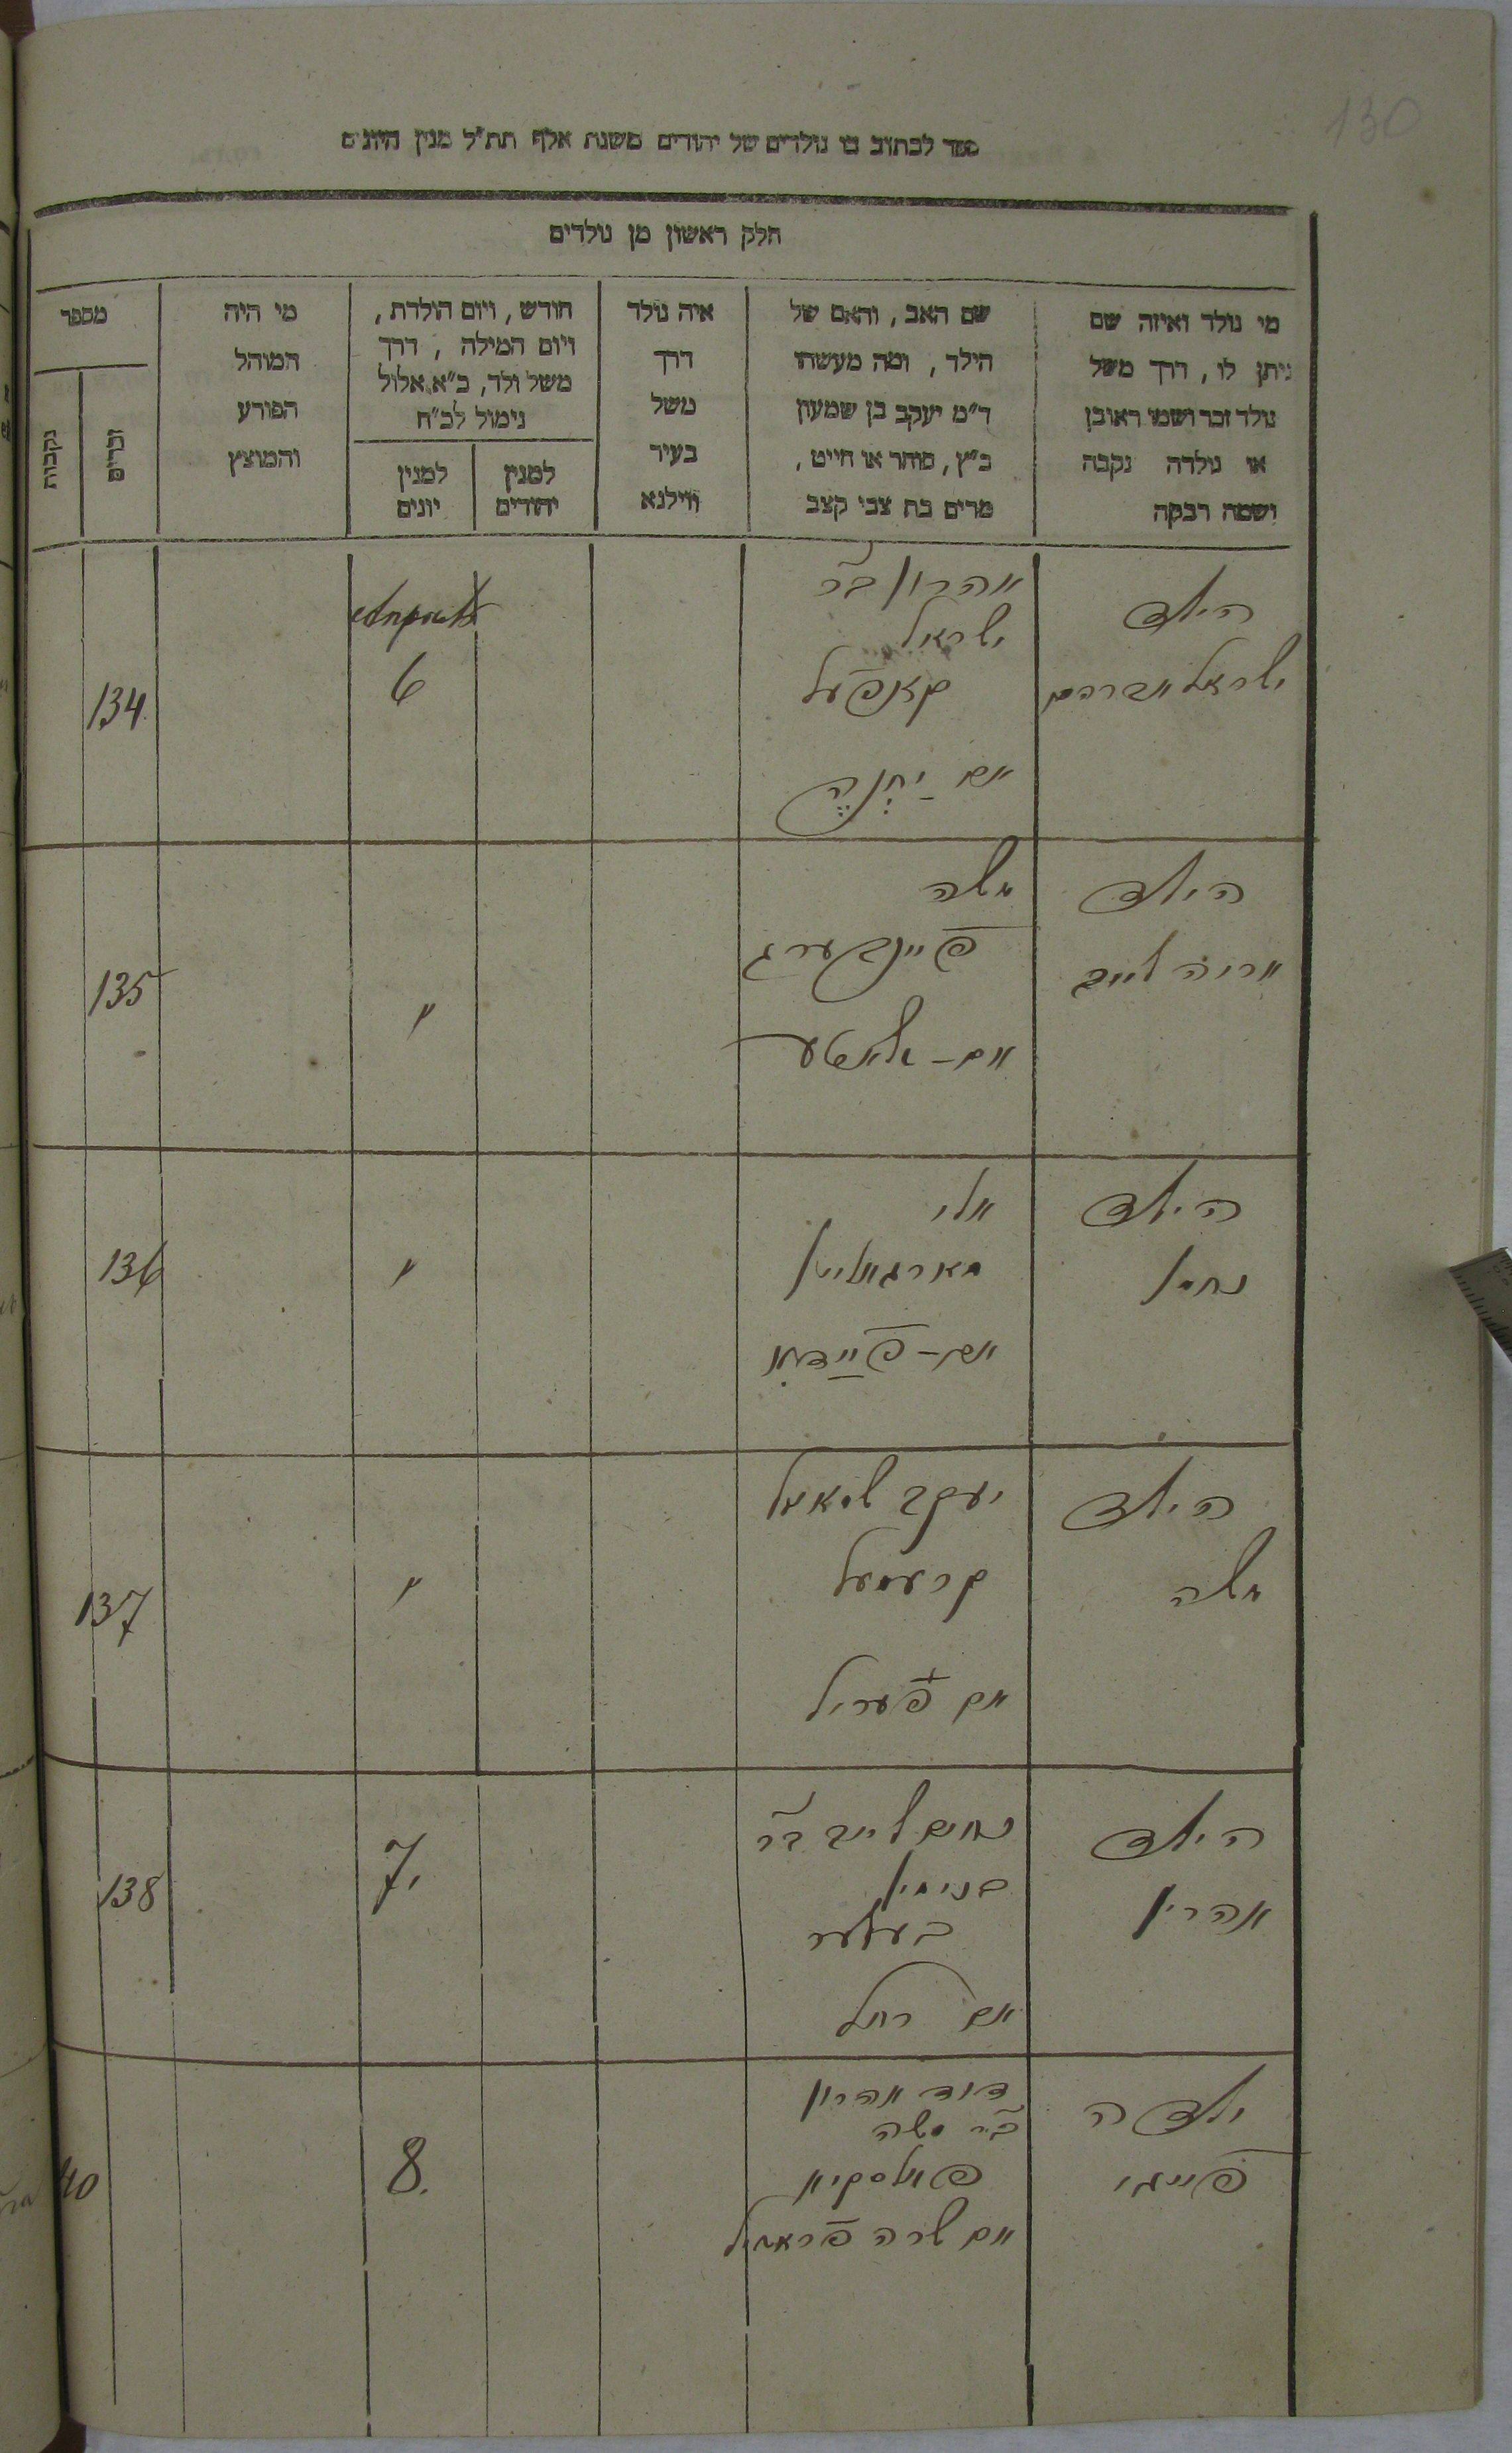 130
ספר לכתוב בו נולדים של יהודים משנת אלף תת"ל מנין היונים
חלק ראשון מן נולדים
מי נולד ואיזה שם
ניתן לו, דרך משל
נולד זכר ושמו ראובן
או נולדה נקבה
ושמה רבקה
שם האב, והאם של
הילד, ומה מעשהו
ד"מ יעקב בן שמעון
כ"ץ, סוחר או חייט,
מרים בת צבי קצב
איה נולד
דרך
משל
בעיר
ווילנא
חודש, ויום הולדת,
ויום המילה, דרך
משל ולד, כ"א אלול
נימול לכ"ח
למנין
יהודים
למנין
יונים
מי היה
המוהל
הפורע
והמוצץ
מספר
זכרים
נקבות
הילד
ישראל אברהם
אהרון בר
ישראל
קאפעל
אם
6
134
הילד
אריה לייב
משה
פיינבערג
אם –
"
135
הילד
נחמן
אלי
מארגאליס
אם –
"
136
הילד
משה
יעקב שמאל
קרעמעל
אם פערל
"
137
הילד
אהרין
נחום לייב בר
בנימין
בעלער
אם רחל
7.
138
ילדה
פייגי
דוד אהרון
בר משה
אם שרה
8.
40